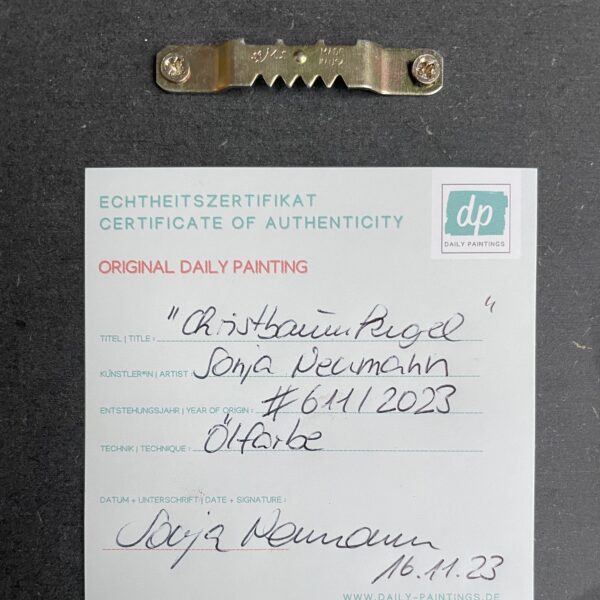 MADE
ECHTHEITSZERTIFIKAT
CERTIFICATE OF AUTHENTICITY
dp
DAILY PAINTINGS
ORIGINAL DAILY PAINTING
TITEL | TITLE : "Christbaumkugel"
KÜNSTLER*IN | ARTIST : Sonja Neumann
ENTSTEHUNGSJAHR | YEAR OF ORIGIN : #611/2023
TECHNIK | TECHNIQUE : Ölfarbe
DATUM + UNTERSCHRIFT | DATE + SIGNATURE :
Sonja Neumann
16.11.23
WWW.DAILY-PAINTINGS.DE